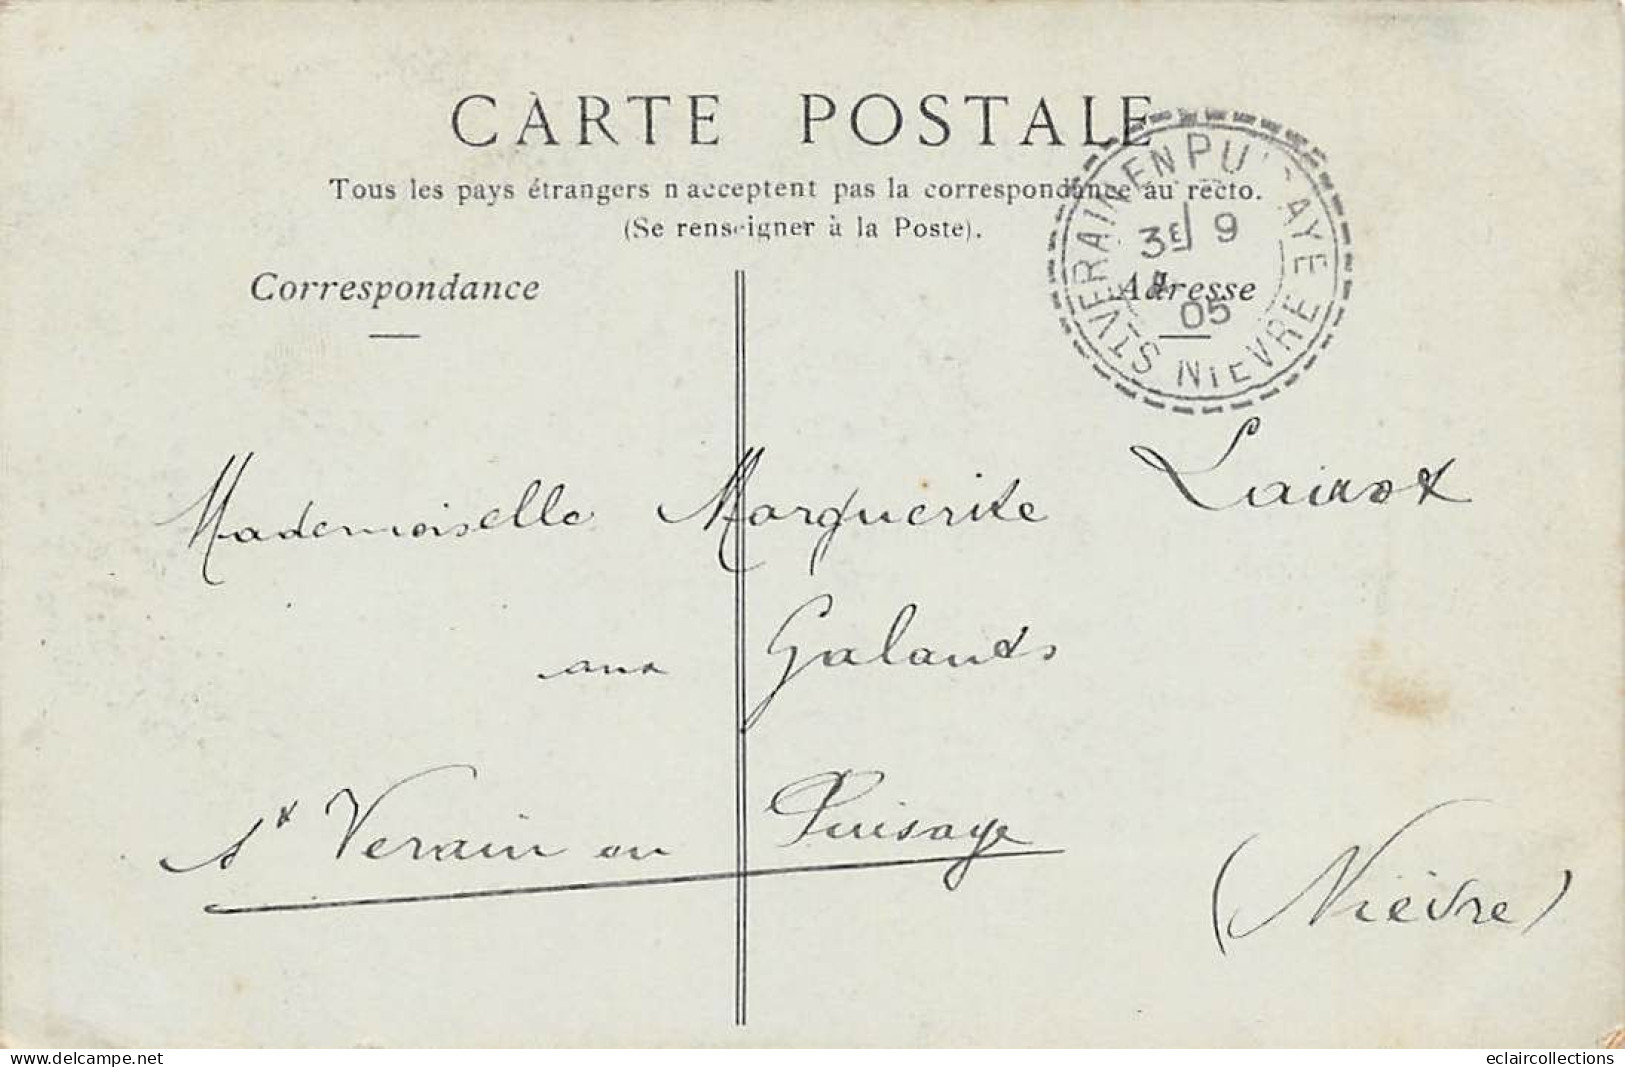 CARTE POSTALE
Tous les pays étrangers n'acceptent pas la correspondance au recto.
(Se renseigner à la Poste).
Correspondance
Adresse
ST VERAIN-EN PUISAYE
3E 9
05
NIEVRE
Mademoiselle Marguerite
aux Galands
St Verain en Puisaye
(Nièvre)
www.delcampe.net
eclaircollections